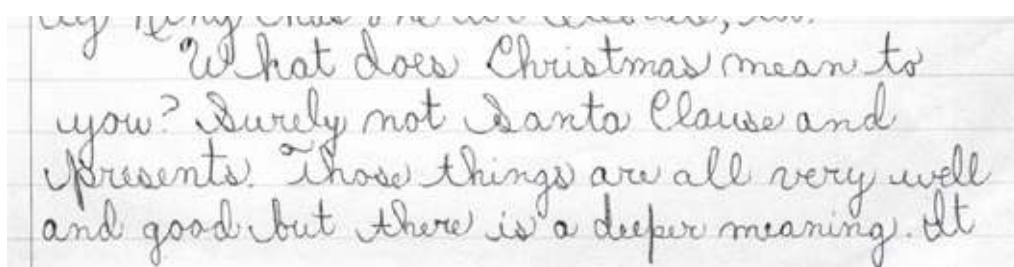 What does Christmas mean to
you? Surely not Santa Clause and
presents. Those things are all very well
and good but there is a deeper meaning. It